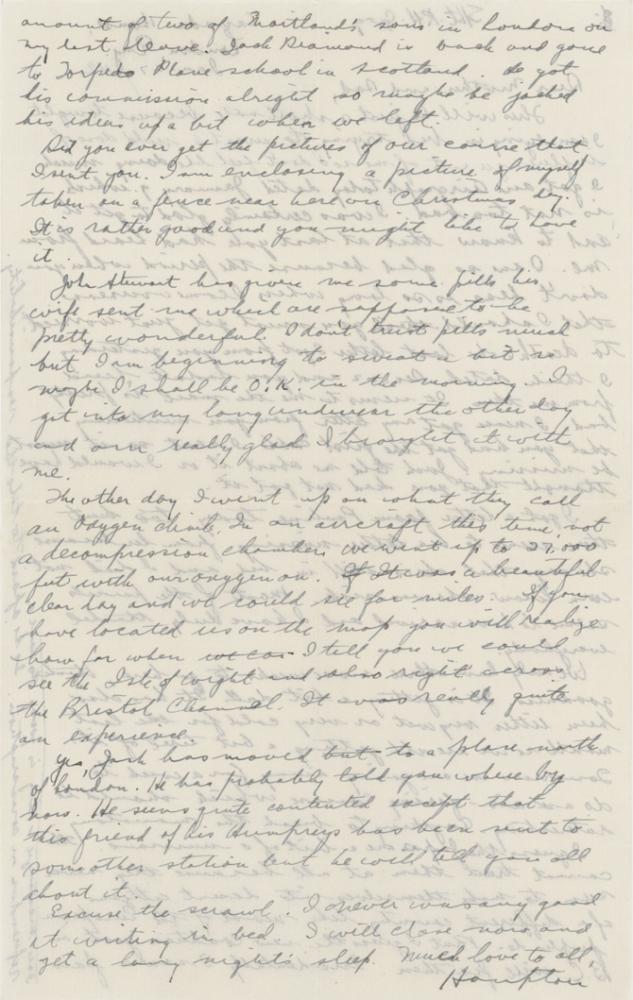 amount of two of Maitland's sons in London on
my last leave. Jack Diamond is back and gone
to Torpedo Plane school in Scotland. He got
his commission alright so maybe he jacked
his ideas up a bit when we left.
Did you ever get the pictures of our course that
I sent you. I am enclosing a picture of myself
taken on a fence near here on Christmas day.
It is rather good and you might like to have
it.
John Stewart has given me some pills his
wife sent me which are suppose to be
pretty wonderful. I don't trust pills much
but I am beginning to sweat a bit so
maybe I shall be O.K. in the morning. I
got into my long underwear the other day
and am really glad I brought it with
me.
The other day I went up on what they call
an oxygen climb. In an aircraft this time, not
a decompression chamber, we went up to 27,000
feet with our oxygen on. It was a beautiful
clear day and we could see for miles. If you
have located us on the map you will realize
how far when I tell you we could
see the Isle of Wight and also right across
the Bristol Channel. It was really quite
an experience.
Yes, Jack has moved but to a place north
of London. He has probably told you where by
now. He seems quite contented except that
this friend of his Humphreys has been sent to
some other station but he will tell you all
about it.
Excuse the scrawl. I never was any good
at writing in bed. I will close now and
get a long night's sleep. Much love to all,
Hampton